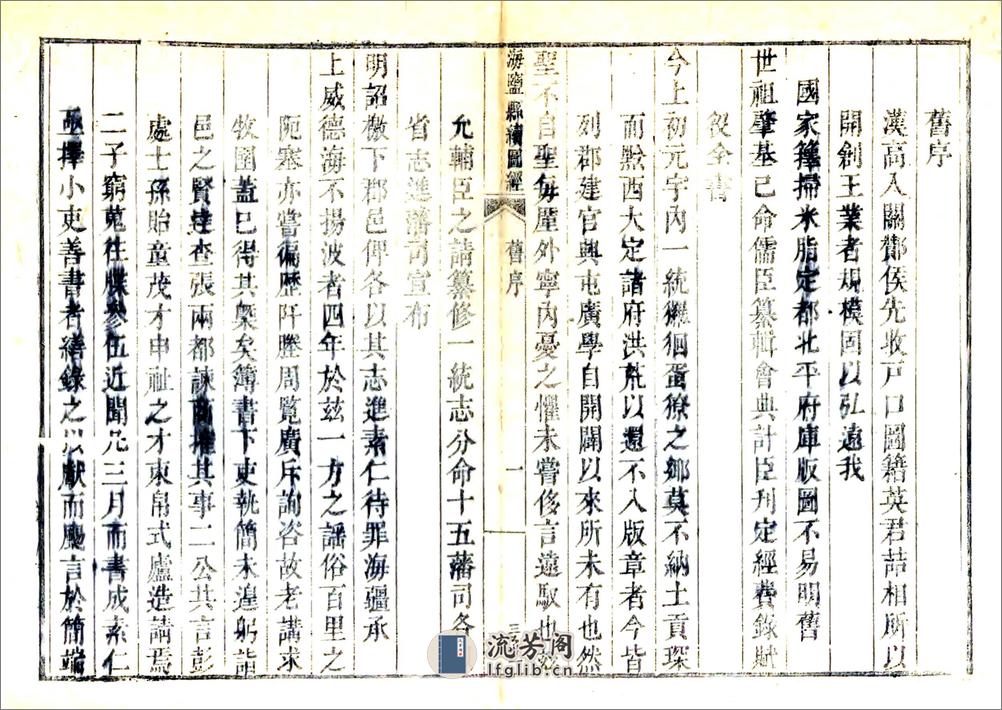 舊序
漢高入關酇侯先收戸口圖籍英君喆相所以
開創王業者規模固以弘遠我
國家籜掃米脂定都北平府庫版圖不易明舊
世祖肇基已命儒臣纂輯會典計臣刋定經費錄賦
役全書
今上初元宇內一統玀猺蛋獠之鄉莫不納土貢琛
而黔酉大定諸府洪荒以還不入版章者今皆
列郡建官興屯廣學自開闢以來所未有也然
聖不自聖每厪外寧內憂之懼未嘗侈言遠馭也
海鹽縣續圖經
舊序
一
三
允輔臣之請纂修一統志分命十五藩司各
省志進藩司宣布
明詔檄下郡邑俾各以其志進素仁待罪海疆承
上威德海不揚波者四年於兹一方之謡俗百里之
阨塞亦嘗徧歷阡塍周覽廣斥詢咨故老講求
牧圉蓋已得其槩矣簿書下吏執簡未遑躬詣
邑之賢達查張兩都諫商搉其事二公共言彭
處士孫貽童茂才申祉之才束帛式廬造請焉
二子窮蒐往牒參伍近聞凡三月而書成素仁
亟擇小吏善書者繕錄之以獻而颺言於簡端
流芳阁
lfglib.cn